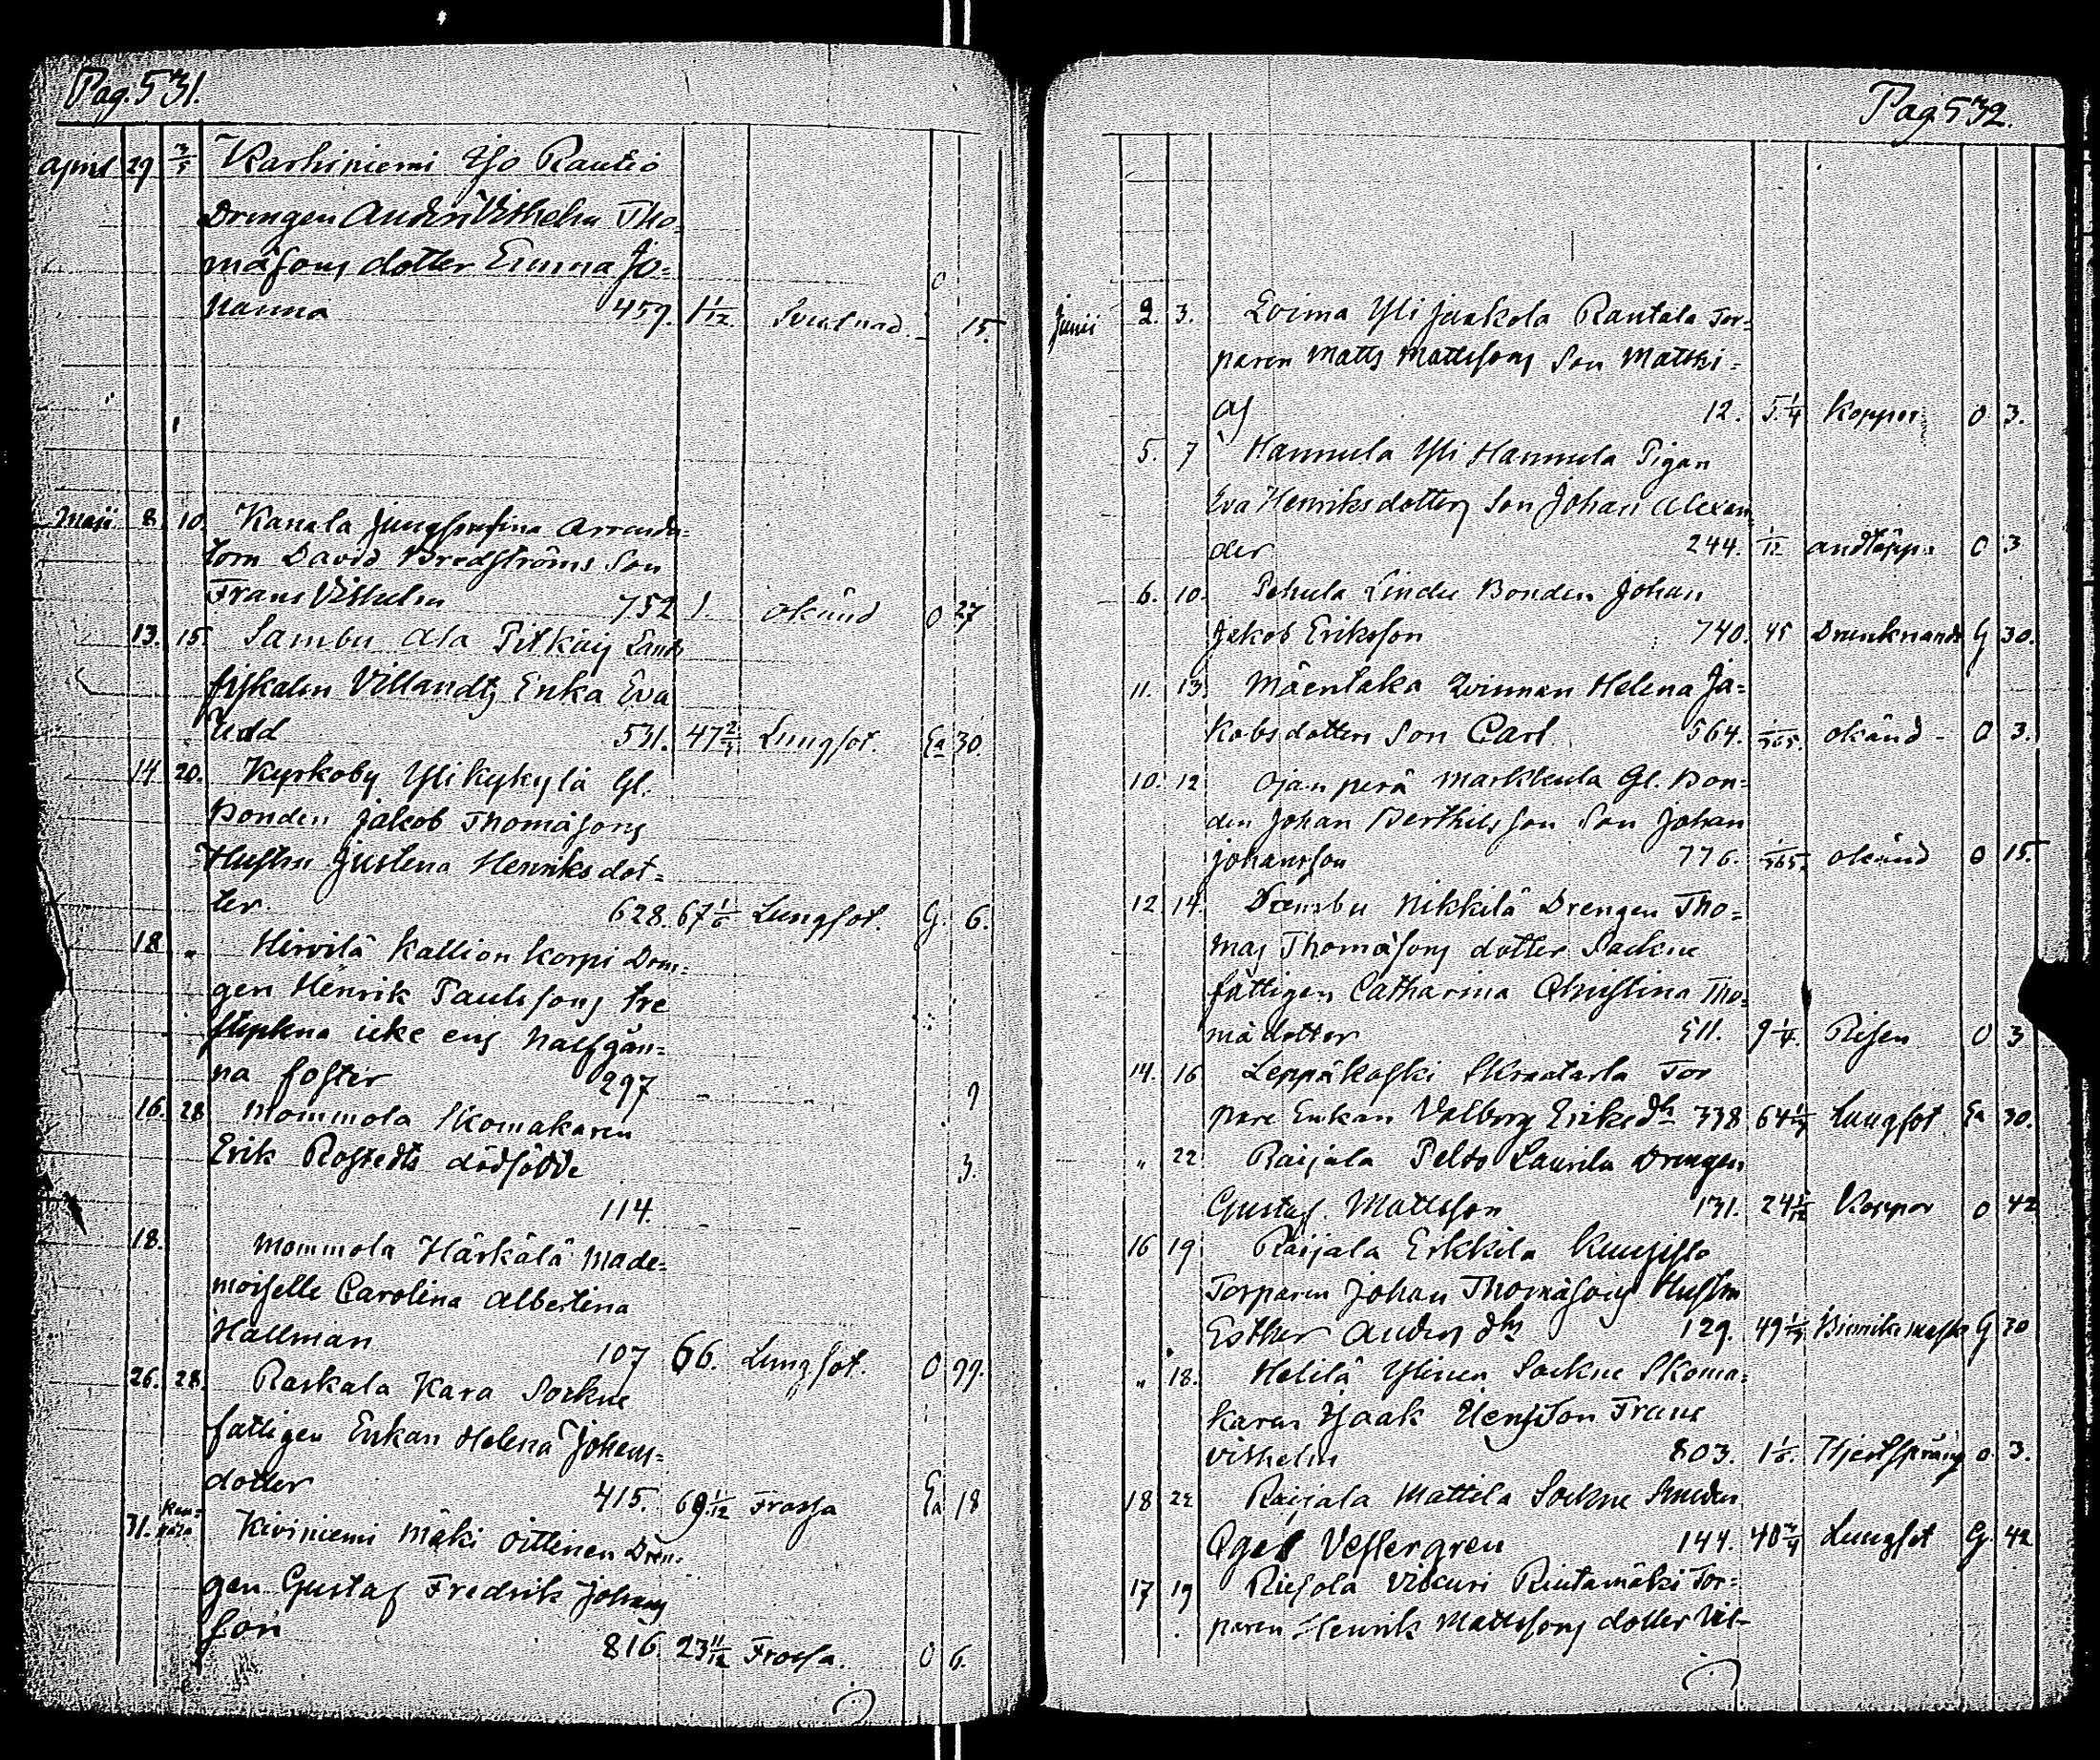 Pag. 531.
April 29 3/5 Karhiniemi Yso Rautio
Drengen Anders Vilhelm Tho-
mäsons dotter Emma Jo-
hanna 459. 1 1/12. 15.
Maji 8. 10. Kanala Arrenda-
torn David Bredströms Son
Frans Vilhelm 752 1. okänd O 27
13. 15. Sambu Ala Pitkäij Lands
fiskalen Villandtz Enka Eva
Udd 531. 47 Lungsot. Ea 30
14 20. Kyrkoby Yli kykylä Gl.
Bonden Jakob Thomäsons
Hustru Justena Henriksdot-
ter. 628. 67 1/6 Lungsot. G. 6.
18 " Hirvilä Kallionkorpi Dren-
gen Henrik Paulssons tre
stycken icke ens halfgån-
na foster 297 9
16. 28 Mommola Skomakaren
Erik Rostedts dödfödde 3.
114.
18. Mommola Härkälä Made-
moiselle Carolina Albertina
Hallman 107 66. Lungsot. O 99.
26. 28. Raskala Kara Sockne
fattigen Enkan Helena Johans-
dotter 415. 69 1/12 Frossa Ea 18
31. Kiviniemi Mäki Oittinen Dren-
gen Gustaf Fredrik Johans
son 816. 23 11/12 Frossa. O 6.
Pag 532.
Junii 2. 3. Loima Yli Jaakola Rantala Tor-
paren Matts Mattssons Son Matthi-
as 12. 5 1/4 Koppor O 3.
5. 7 Hannula Yli Hannula Pigan
Eva Henriksdotters Son Johan Alexan
der 244. 1/12 andtäppa O 3
6. 10. Pehula Lindu Bonden Johan
Jakob Eriksson 740. 45 Drunknande G 30.
11. 13. Mäentaka Qvinnan Helena Ja-
kobsdotters Son Carl 564. 1/365. okänd - O 3.
10. 12 Ojanperä Markkula Gl. Bon-
den Johan Berthilsson Son Johan
Johansson 776. 1/365. okänd O 15.
12. 14. Nikkilä Drengen Tho-
mas Thomäsons dotter Sockne
fattigen Catharina Christina Tho-
mädotter 511. 9 1/4. Risen O 3
14. 16 Leppäkoski Tor
pare Enkan Valborg Eriksdr 738 64 Lungsot Ea 30.
" 22 Raijala Pelto Laurila Drengen
Gustaf Mattsson 131. 24 1/12 Koppor O 42
16 19 Raijala Erkkila Kuusisto
Torparen Johan Thomäsons Hustru
Esther Anders dr 129. 49 Binnikemask G 30
" 18. Helilä Ylinen Sockne Skoma-
karen Isaak Son Frans
Vilhelm 803. 1 1/6. Hjertsprång O. 3.
18 22 Raijala Mattila Sockne Smeden
Vestergren 144. 40 3/4 Lungsot G. 42
17 19 Riesola Viikuri Rintamäki Tor-
paren Henrik Mattssons dotter Vil-